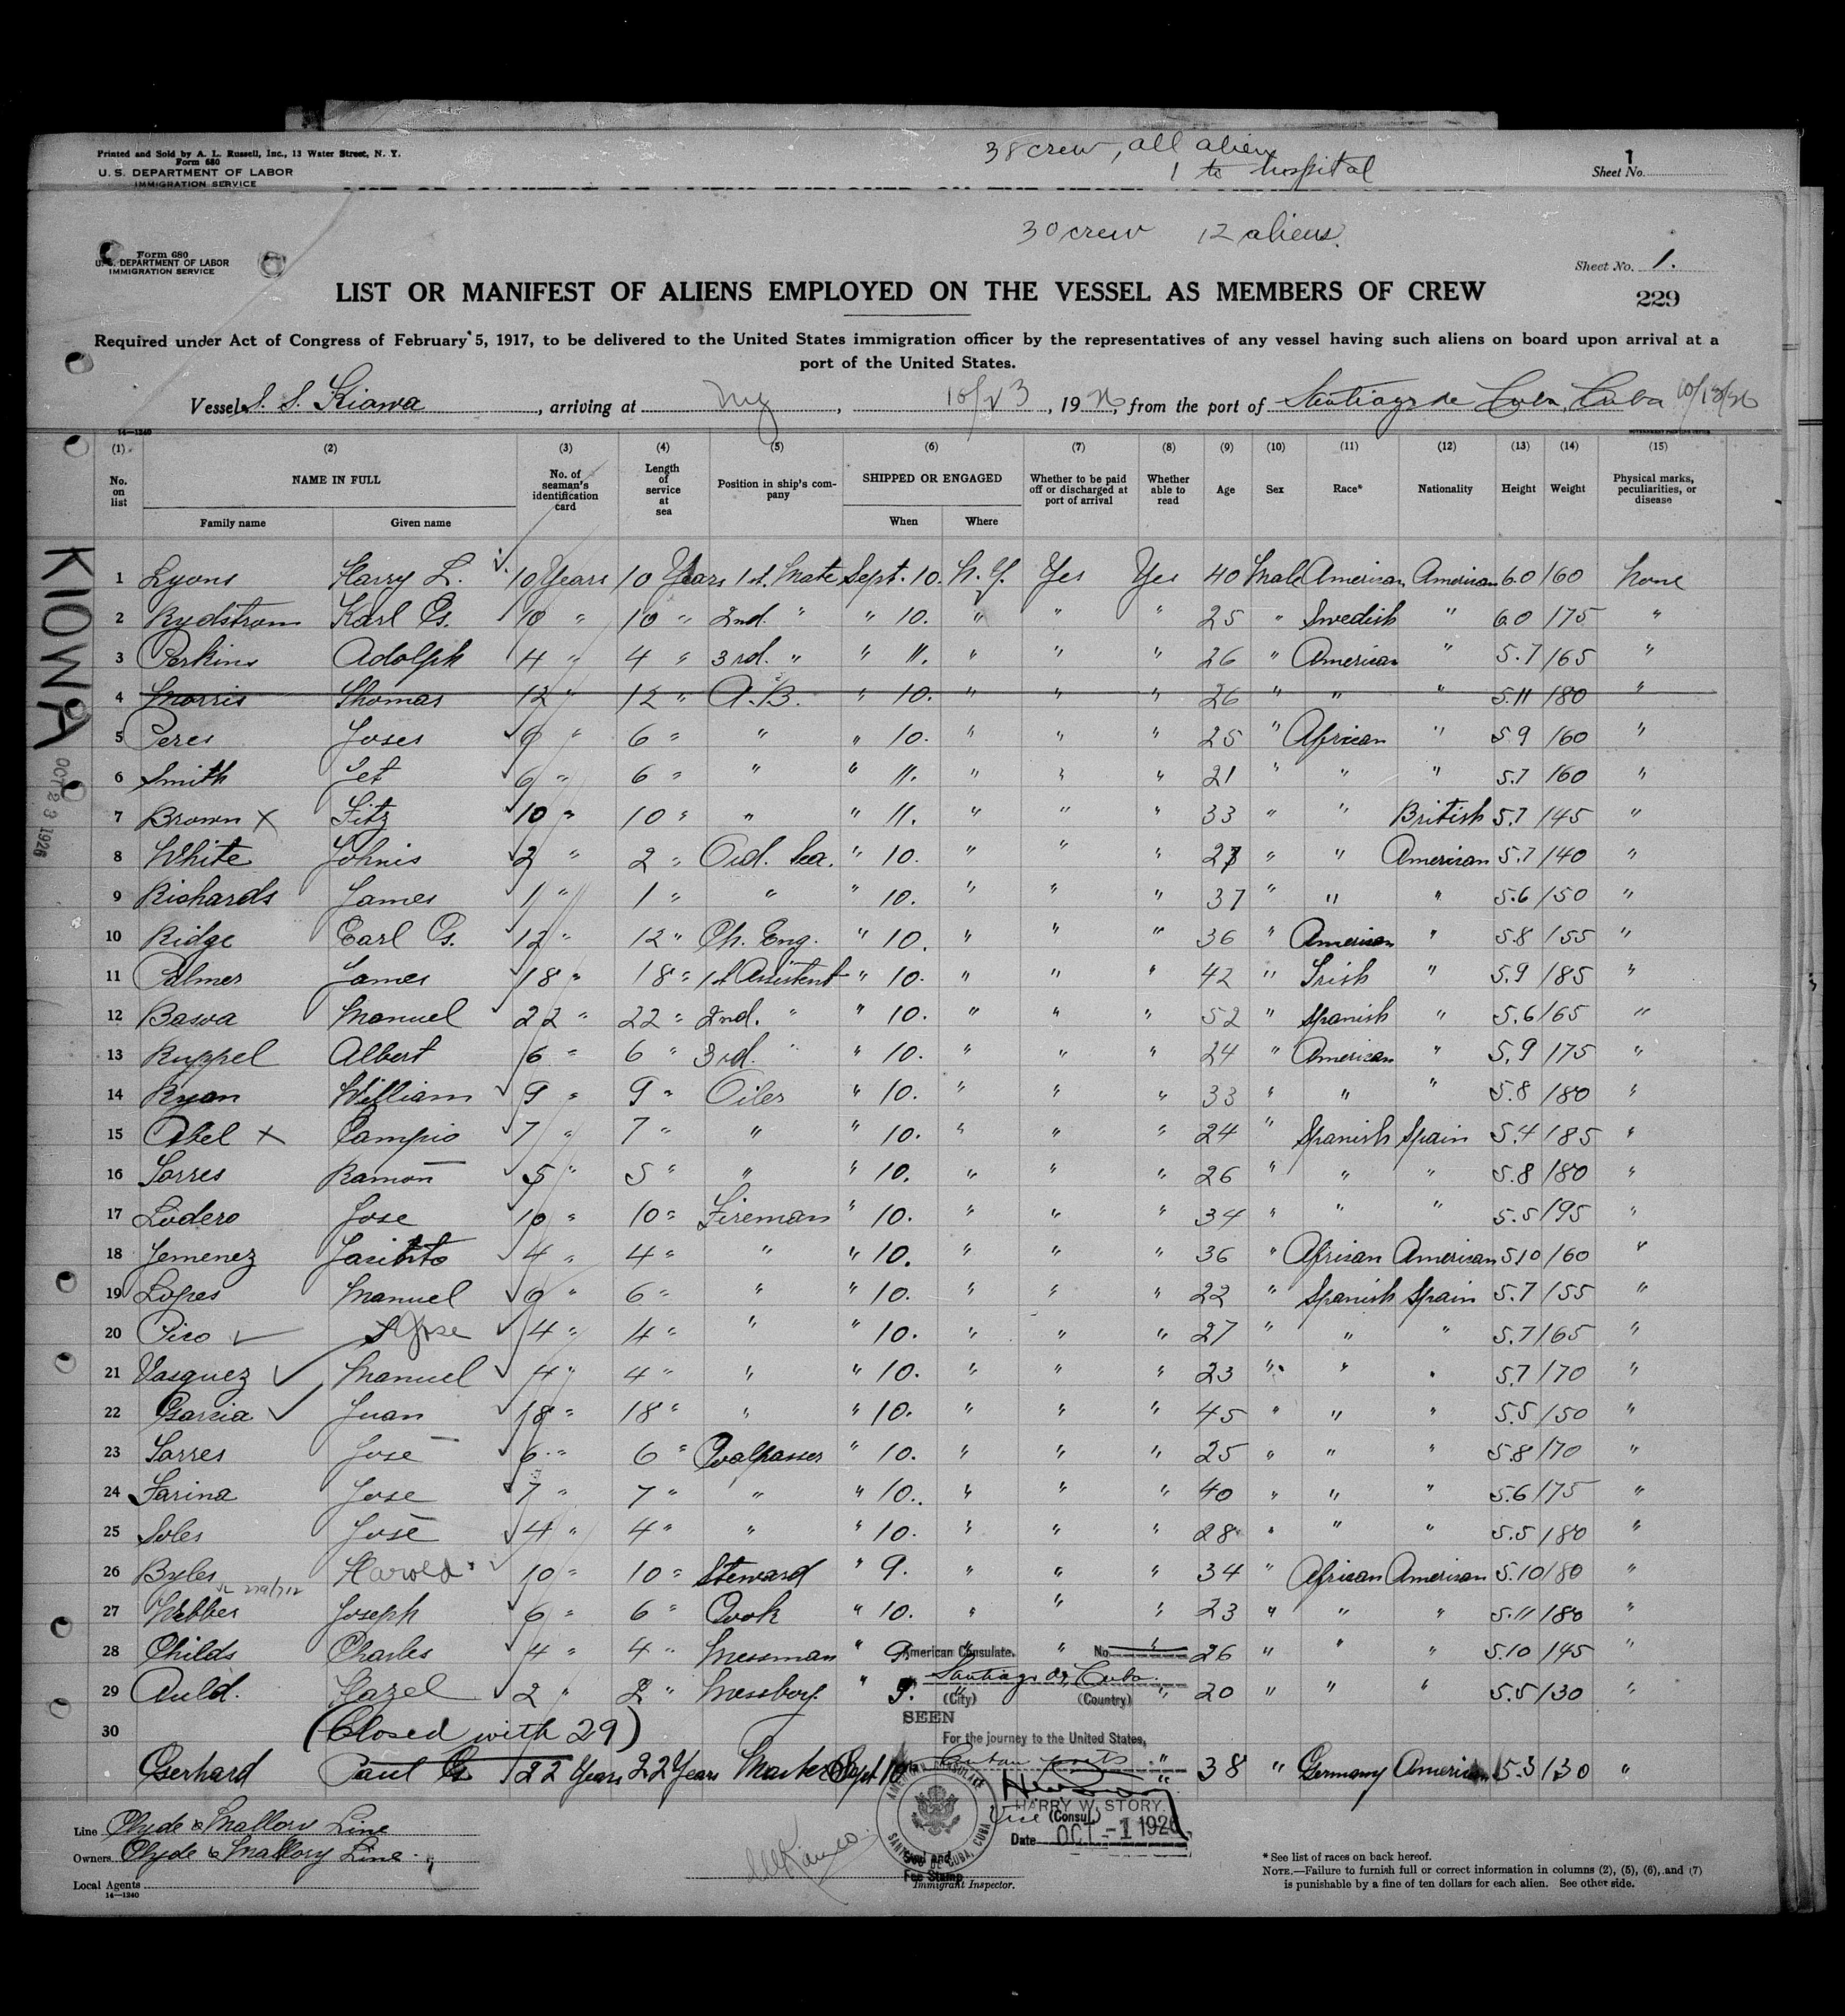 Printed and Sold by A. L. Russell, Inc., 13 Water Street, N. Y.
Form 680
U. S. DEPARTMENT OF LABOR
IMMIGRATION SERVICE
38 crew, all alien
1 to hospital
1
Sheet No.
30 crew 12 aliens.
Form 680
U. S. DEPARTMENT OF LABOR
IMMIGRATION SERVICE
Sheet No. 1.
LIST OR MANIFEST OF ALIENS EMPLOYED ON THE VESSEL AS MEMBERS OF CREW
229
Required under Act of Congress of February 5, 1917, to be delivered to the United States immigration officer by the representatives of any vessel having such aliens on board upon arrival at a
port of the United States.
Vessel S. S. Kiowa, arriving at NY, 10/23, 1926, from the port of Santiago de Cuba, Cuba 10/18/26
14—1240
(1) (2) (3) (4) (5) (6) (7) (8) (9) (10) (11) (12) (13) (14) (15)
No. on list NAME IN FULL No. of seaman's identification card Length of service at sea Position in ship's company SHIPPED OR ENGAGED Whether to be paid off or discharged at port of arrival Whether able to read Age Sex Race* Nationality Height Weight Physical marks, peculiarities, or disease
Family name Given name When Where
KIOWA
OCT 23 1926
1 Lyons Harry L. 10 Years 10 Years 1st. Mate Sept. 10. N. Y. Yes Yes 40 Male American American 6.0 160 None
2 Rydstrom Karl G. 10 " 10 " 2nd. " " 10. " " " 25 " Swedish " 6.0 175 "
3 Perkins Adolph 4 " 4 " 3rd. " " 11. " " " 26 " American " 5.7 165 "
4 Morris Thomas 12 " 12 " A.B. " 10. " " " 26 " " " 5.11 180 "
5 Peres Joses 6 " 6 " " " 10. " " " 25 " African " 5.9 160 "
6 Smith Jet 6 " 6 " " " 11. " " " 21 " " " 5.7 160 "
7 Brown X Fitz 10 " 10 " " " 11. " " " 33 " " British 5.7 145 "
8 White Johnis 2 " 2 " Ord. Sea. " 10. " " " 27 " " American 5.7 140 "
9 Richards James 1 " 1 " " " 10. " " " 37 " " " 5.6 150 "
10 Ridge Earl G. 12 " 12 " Ch. Eng. " 10. " " " 36 " American " 5.8 155 "
11 Palmer James 18 " 18 " 1st Assistent " 10. " " " 42 " Irish " 5.9 185 "
12 Basoa Manuel 22 " 22 " 2nd. " " 10. " " " 52 " Spanish " 5.6 165 "
13 Ruppel Albert 6 " 6 " 3rd. " " 10. " " " 24 " American " 5.9 175 "
14 Ryan William 9 " 9 " Oiler " 10. " " " 33 " " " 5.8 180 "
15 Abel X Campio 7 " 7 " " " 10. " " " 24 " Spanish Spain 5.4 185 "
16 Torres Ramon 5 " 5 " " " 10. " " " 26 " " " 5.8 180 "
17 Lodero Jose 10 " 10 " Fireman " 10. " " " 34 " " " 5.5 195 "
18 Jemenez Jacinto 4 " 4 " " " 10. " " " 36 " African American 5.10 160 "
19 Lopes Manuel 6 " 6 " " " 10. " " " 22 " Spanish Spain 5.7 155 "
20 Pico Jose 4 " 4 " " " 10. " " " 27 " " " 5.7 165 "
21 Vasquez Manuel 4 " 4 " " " 10. " " " 23 " " " 5.7 170 "
22 Garcia Juan 18 " 18 " " " 10. " " " 45 " " " 5.5 150 "
23 Torres Jose 6 " 6 " Coalpasser " 10. " " " 25 " " " 5.8 170 "
24 Farina Jose 7 " 7 " " " 10. " " " 40 " " " 5.6 175 "
25 Soles Jose 4 " 4 " " " 10. " " " 28 " " " 5.5 180 "
26 Byles Harold 10 " 10 " Steward " 9. " " " 34 " African American 5.10 180 "
27 Webber Joseph 6 " 6 " Cook " 10. " " " 23 " " " 5.11 180 "
28 Childs Charles 4 " 4 " Messman " 9. " " " 26 " " " 5.10 145 "
American Consulate. No.
Santiago de, Cuba.
29 Auld. Hazel 2 " 2 " Messboy. " 9. " " 20 " " " 5.5 130 "
(City) (Country)
SEEN
30 (Closed with 29)
For the journey to the United States,
Gerhard Paul G. 22 Years 22 Years Master Sept 10 " 38 " Germany American 5.3 130 "
AMERICAN CONSULATE SANTIAGO DE CUBA, CUBA
HARRY W. STORY.
Vice (Consul)
Date OCT -1 1926
Line Clyde & Mallory Line
Owners Clyde & Mallory Line.
Local Agents
14—1240
Fee Stamp
Immigrant Inspector.
* See list of races on back hereof.
NOTE.—Failure to furnish full or correct information in columns (2), (5), (6), and (7)
is punishable by a fine of ten dollars for each alien. See other side.